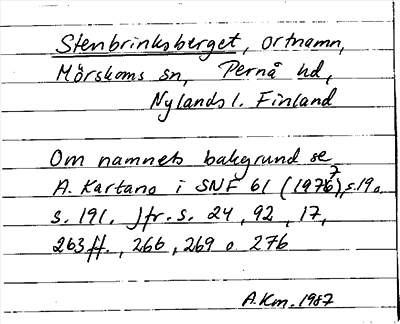 Stenbrinksberget, ortnamn,
Mörskoms sn, Pernå hd,
Nylands l. Finland
Om namnets bakgrund se
A. Kartano i SNF 61 (1976), s.19 o.
s. 191. Jfr. s. 24, 92, 17,
263 ff., 266, 269 o 276
A.Km. 1987